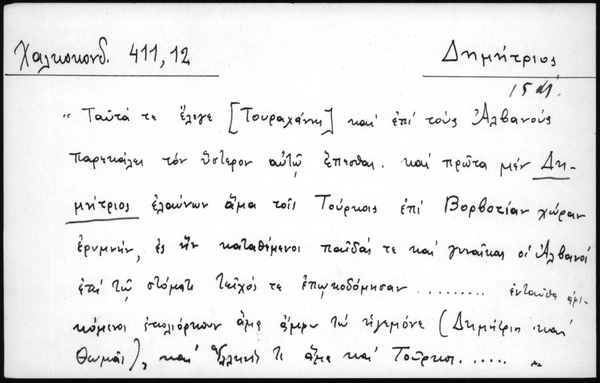 Χαλκοκονδ. 411,12
Δημήτριος
"Ταῦτά τε ἔλεγε [Τουραχάνης] καὶ ἐπὶ τοὺς Ἀλβανοὺς
παρεκάλει τὸν ὕστερον αὐτῷ ἕπεσθαι. καὶ πρῶτα μὲν Δη-
μήτριος ἐλαύνων ἅμα τοῖς Τούρκοις ἐπὶ Βορβοτίαν χώραν
ἐρυμνήν, ἐς ἣν καταθέμενοι παῖδάς τε καὶ γυναῖκας οἱ Ἀλβανοὶ
ἐπὶ τῷ στόματι τεῖχός τε ἐπῳκοδόμησαν ......... ἐνταῦθα ἀφι-
κόμενοι ἐπολιόρκουν ἅμα ἄμφω τὼ ἡγεμόνε (Δημήτριος καὶ
Θωμᾶς), καὶ Ἕλληνές τε ἅμα καὶ Τούρκοι.....